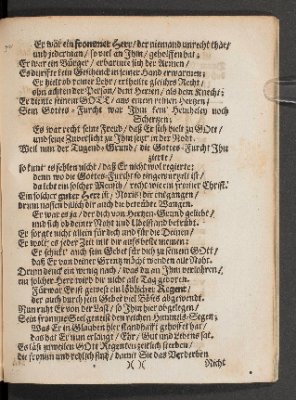 Er war ein frommer Herr / der niemand unrecht thät /
und jederman / so viel an Ihm / geholffen hat;
Er war ein Bürger / erbarmte sich der Armen /
Es durffte kein Geschenck in seiner Hand erwarmen;
Er hielt ob reiner Lehr / ertheilte gleiches Recht /
ohn achten der Person / dem Herren / als dem Knecht;
Er diente seinem GOTT / aus einem reinen Hertzen /
Sein Gottes-Furcht war Ihm kein Heucheley noch
Schertzen;
Es war recht seine Freud / daß Er sich hielt zu GOtt /
und seine Zuversicht zu Ihm setzt in der Noht.
Weil nun der Tugend-Grund / die Gottes-Furcht Ihn
zierte /
so kunt es fehlen nicht / daß Er nicht wol regierte;
denn wo die Gottes-Furcht so eingewurtzelt ist /
da lebt ein solcher Mensch / recht wie ein frommer Christ.
Ein solcher guter Herr ist / Noris / dir entgangen /
drumm billich dir auch die betrübte Wangen.
Er war es ja / der dich von Hertzen-Grund geliebt /
und sich ob deiner Noht und Ubelstand betrübt.
Er sorgte nicht allein für dich und für die Deinen /
Er wolt es jeder Zeit mit dir auffs beste meinen:
Er schickt auch sein Gebet für dich zu seinem GOtt /
daß Er von deiner Grentz mögt wenden alle Noht.
Drumm denck ein wenig nach / was du an Ihm verlohren /
ein solcher Herr wird dir nicht alle Tag geboren.
Fürwar Er ist gewest ein löblicher Regent /
der auch durch sein Gebet viel Böses abgewendt.
Nun ruht Er von der Last / so Ihm hier obgelegen /
Sein fromme Seel geneust den reichen Himmels-Segen;
Was Er im Glauben hier standhafft gehoffet hat /
das hat Er nun erlangt / Ehr / Gut und Lebens satt.
Es läst zuweilen GOtt Regenten zeitlich sterben /
die fromm und redlich sind / damit Sie das Verderben
)( )(
Nicht